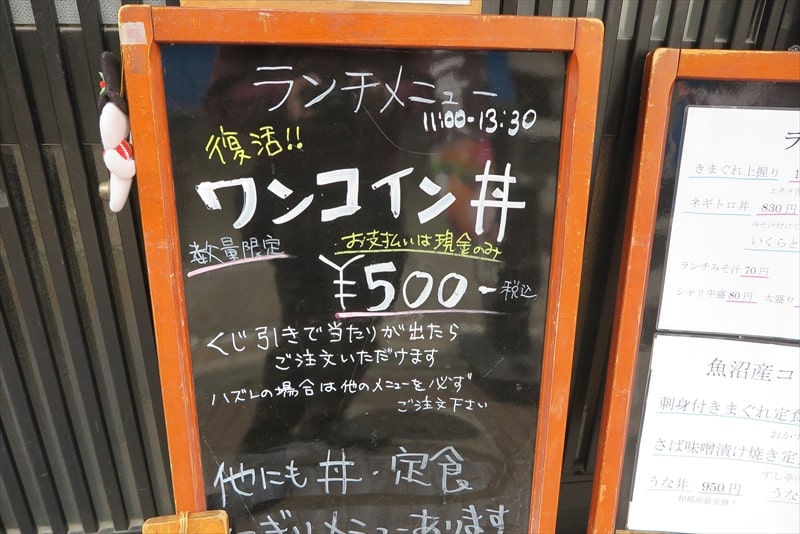 ランチメニュー
11:00-13:30
復活!!
ワンコイン丼
数量限定
お支払いは現金のみ
¥500-税込
くじ引きで当たりが出たら
ご注文いただけます
ハズレの場合は他のメニューを必ず
ご注文下さい
他にも丼・定食
ぎりメニューあります
きまぐれ上握り
ネギトロ丼 830円
いくらと
ランチみそ汁 70円
シャリ中盛 80円 大盛り
魚沼産コ
刺身付きまぐれ定食
さば味噌漬け焼き定
うな丼 950円